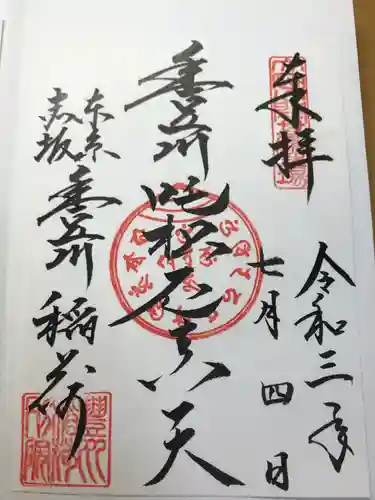 奉拝
令和三年
七月四日
豊川吒枳尼真天
東京
赤坂
豊川稲荷